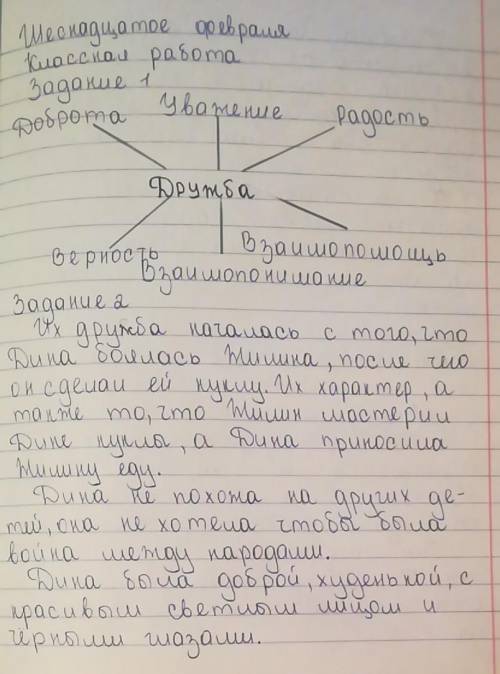 Шеснадцатое февраля
Классная работа
Задание 1
Доброта Уважение Радость
Дружба
Верность Взаимопомощь
Взаимопонимание
Задание 2
Их дружба началась с того, что
Дина боялась Жилина, после чего
он сделал ей куклу. Их характер, а
также то, что Жилин мастерил
Дине куклы, а Дина приносила
Жилину еду.
Дина не похожа на других де-
тей, она не хотела чтобы была
война между народами.
Дина была доброй, худенькой, с
красивым светлым лицом и
чёрными глазами.